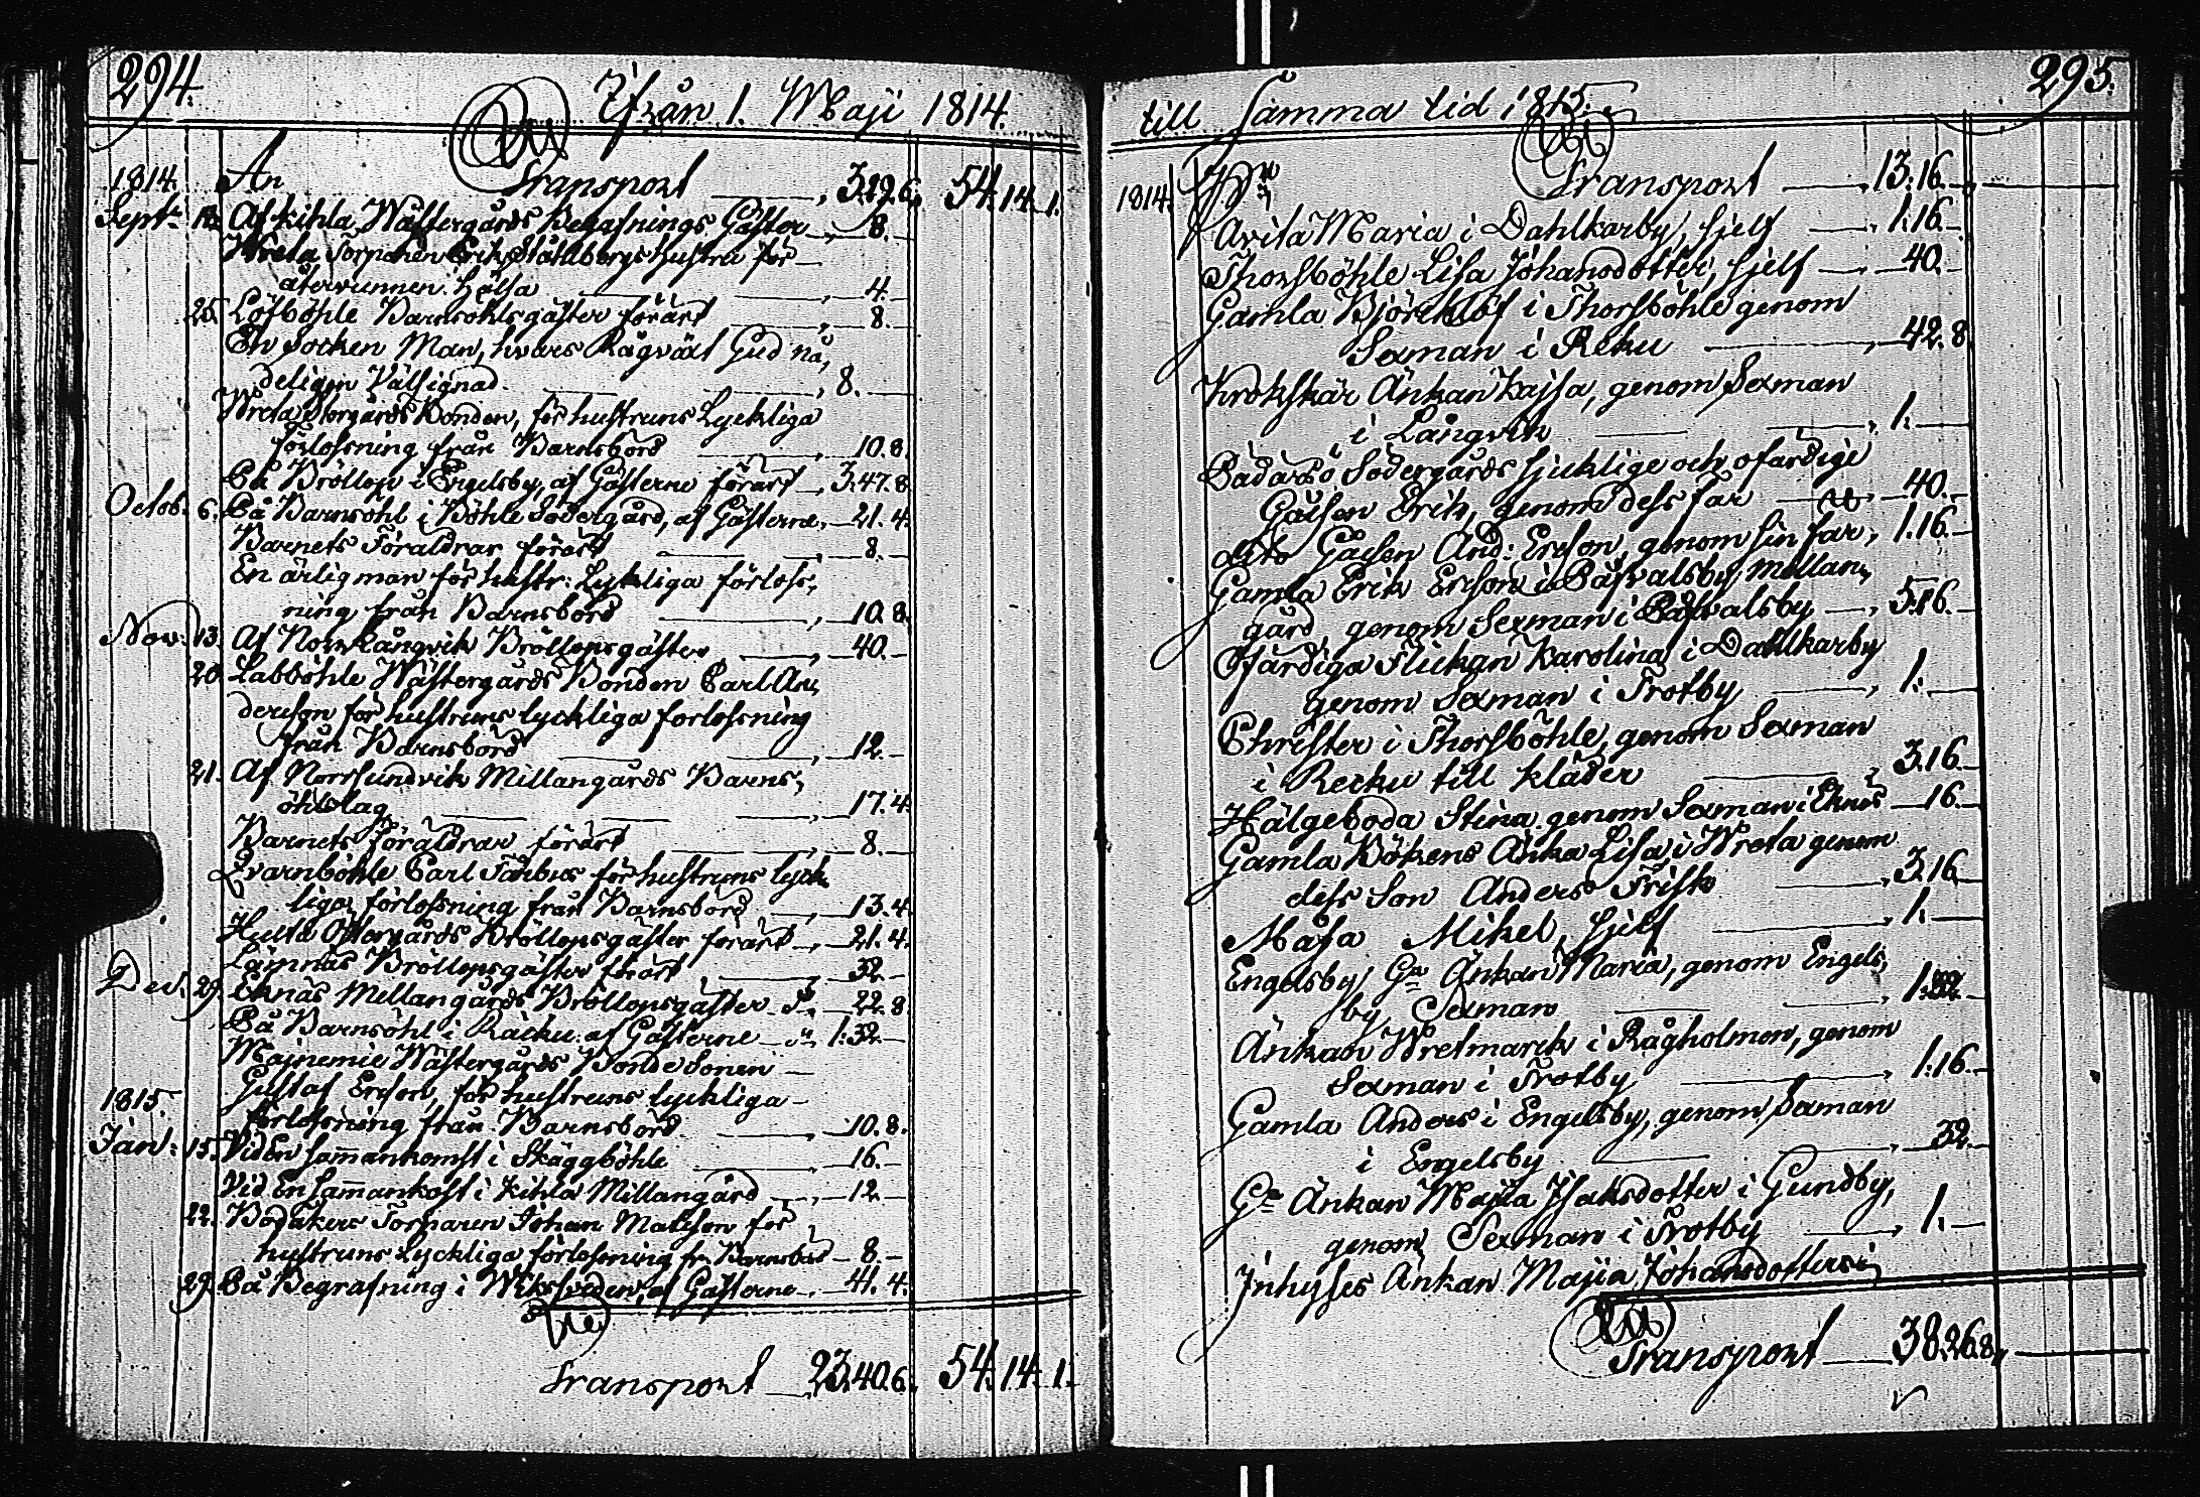 294.
Ifrån 1. Maji 1814.
1814. An Transport 3.29.6. 54.14.1.
Septr 18. Af Kihla Wästergårds Begrafnings Gäster 8.
Wreta Torparen Erik Ståhlbergs hustru för
återvunnen hälsa 4.
25. Löfböhle Barnsöhlsgäster förärt 8.
En Socken Man, hvars Rågväxt Gud nå,
deligen Välsignad 8.
Wreta Storgårds Bonden, för hustruns Lyckliga
förlossning från Barnsbörd 10.8.
På Bröllop i Engelsby, af Gästerne förärt 3.47.8
Octob. 6. På Barnsöhl i Böhle Södergård, af Gästerne 21.4.
Barnets Föräldrar förärt 8.
En ärlig man för hustr: Lykliga förloss:
ning från Barnsbörd 10.8.
Nov. 13. Af Norrlångvik Bröllopsgäster 40.
20. Labböhle Wästergårds Bonden Carl An,
dersson för hustruns lyckliga forlossning
från Barnsbörd 12.
21. Af Norrsundvik Millangårds Barns,
öhlslag 17.4
Barnets föräldrar förärt 8.
Qvarnböhle Carl Fahbus för hustruns lyck
liga förlossning från Barnsbörd 13.4.
Hulta Östergårds Bröllopsgäster förärt 21.4.
Lämnäs Bröllopsgäster förärt 32.
Dec. 29. Eknäs Mellangårds Bröllopsgäster 22.8
På Barnsöhl i Räcku af Gästerne 1:32.
Majnemie Wästergårds BondeSonen
1815. Gustaf Ersson, för hustruns lyckliga
förlossning från Barnsbörd 10.8.
Jan: 15. Vid En sam̄ankomst i Skäggböhle 16.
Vid En Sam̄ankost i Kihla Millangård 12.
22. Bodåkers Torparen Johan Matsson för
hustruns Lyckliga förlossning fr Barnsbörd 8.
29. På Begrafning i Wiksveden, af Gästerne 41.4.
Transport 23.40.6. 54.14.1.
295.
till Samma tid 1815.
1814. Pr Transport 13.16.
Avita Maria i Dahlkarby, sjelf 1.16.
Thorsböhle Lisa Johansdotter, sjelf 40.
Gamla Björklöf i Thorsböhle genom
Sexman i Reku 42.8
Krokskär Änkan Kajsa, genom Sexman
i Långvik 1.
Södergårds sjuklige och ofärdige
Gossen Erik, genom dess far 40.
dito Gossen And: Ersson, genom sin far, 1.16.
Gamla Erik Ersson i Påfvalsby, mellan,
gård, genom Sexman i Påfvalsby 5.16.
Ofärdiga Flickan Karolina i Dahlkarby
genom Sexman i Trotby 1.
Christer i Thorsböhle, genom Sexman
i Recku till kläder 3.16.
Hälgeboda Stina genom Sexman i Eknäs 16.
Gamla Bökens Änka Lisa i Wreta genom
dess Son Anders Frisk 3.16.
Måsa Mikel, sjelf 1.
Engelsby Gla Änkan Maria, genom Engels,
by Sexman
Änkan Wretmarck i Rågholmen, genom
Sexman i Trotby 1.16.
Gamla Anders i Engelsby, genom Sexman
i Engelsby 32.
Gla Änkan Majia Isaksdotter i Gundby,
genom Sexman i Trotby 1.
Inhyses Änkan Majia Johansdotter i
Transport 38.26.8.